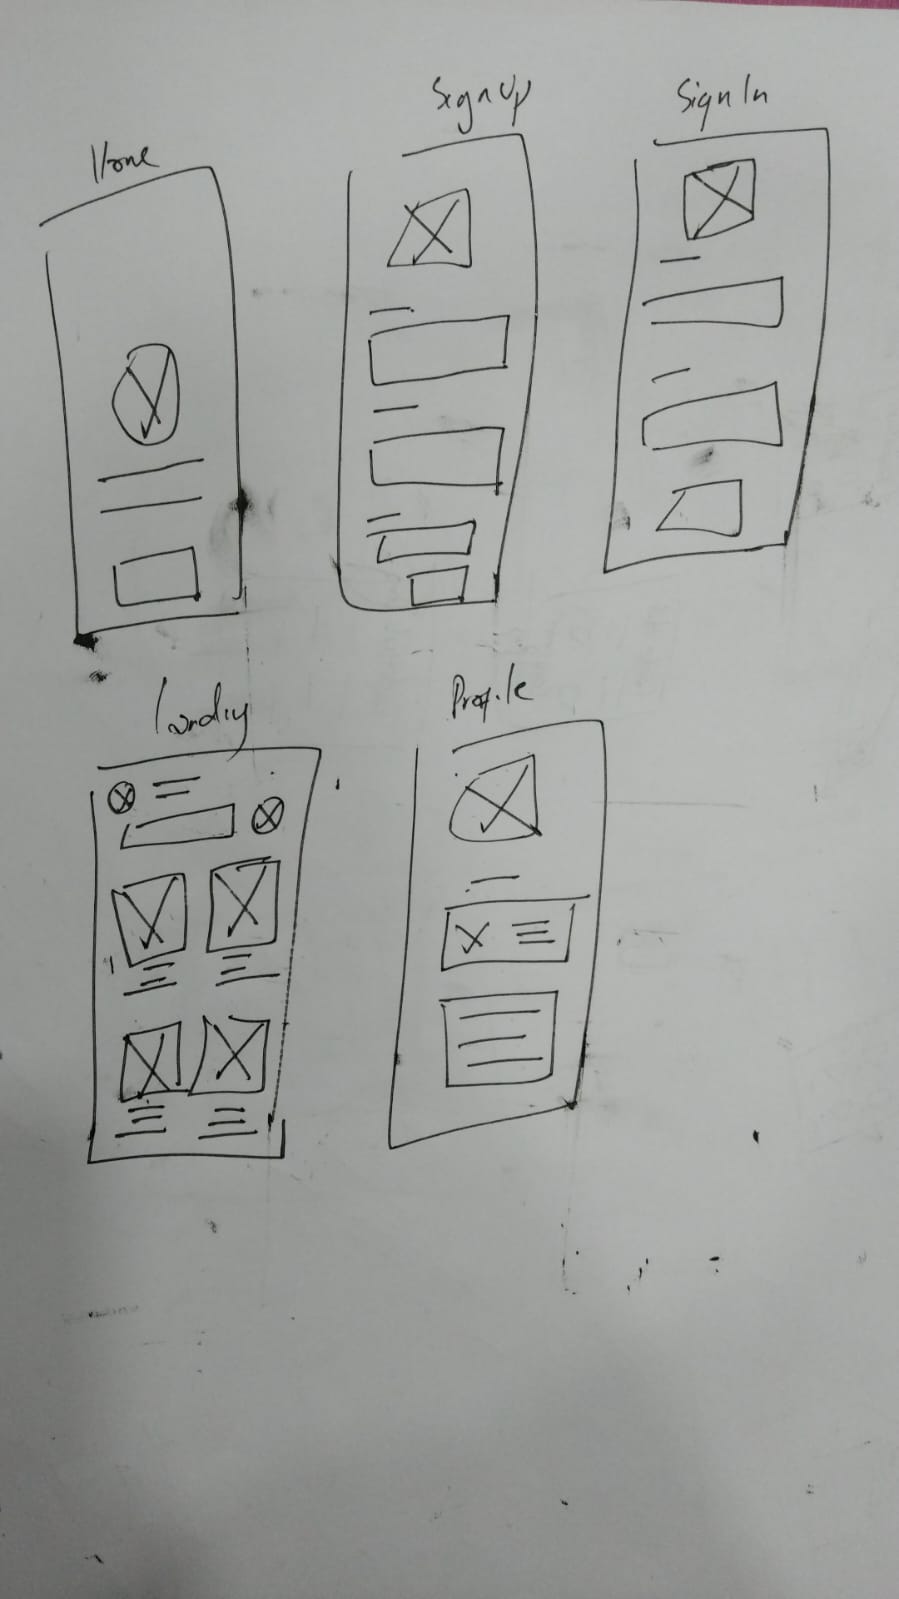 Home
Sign Up
Sign In
Landing
Profile